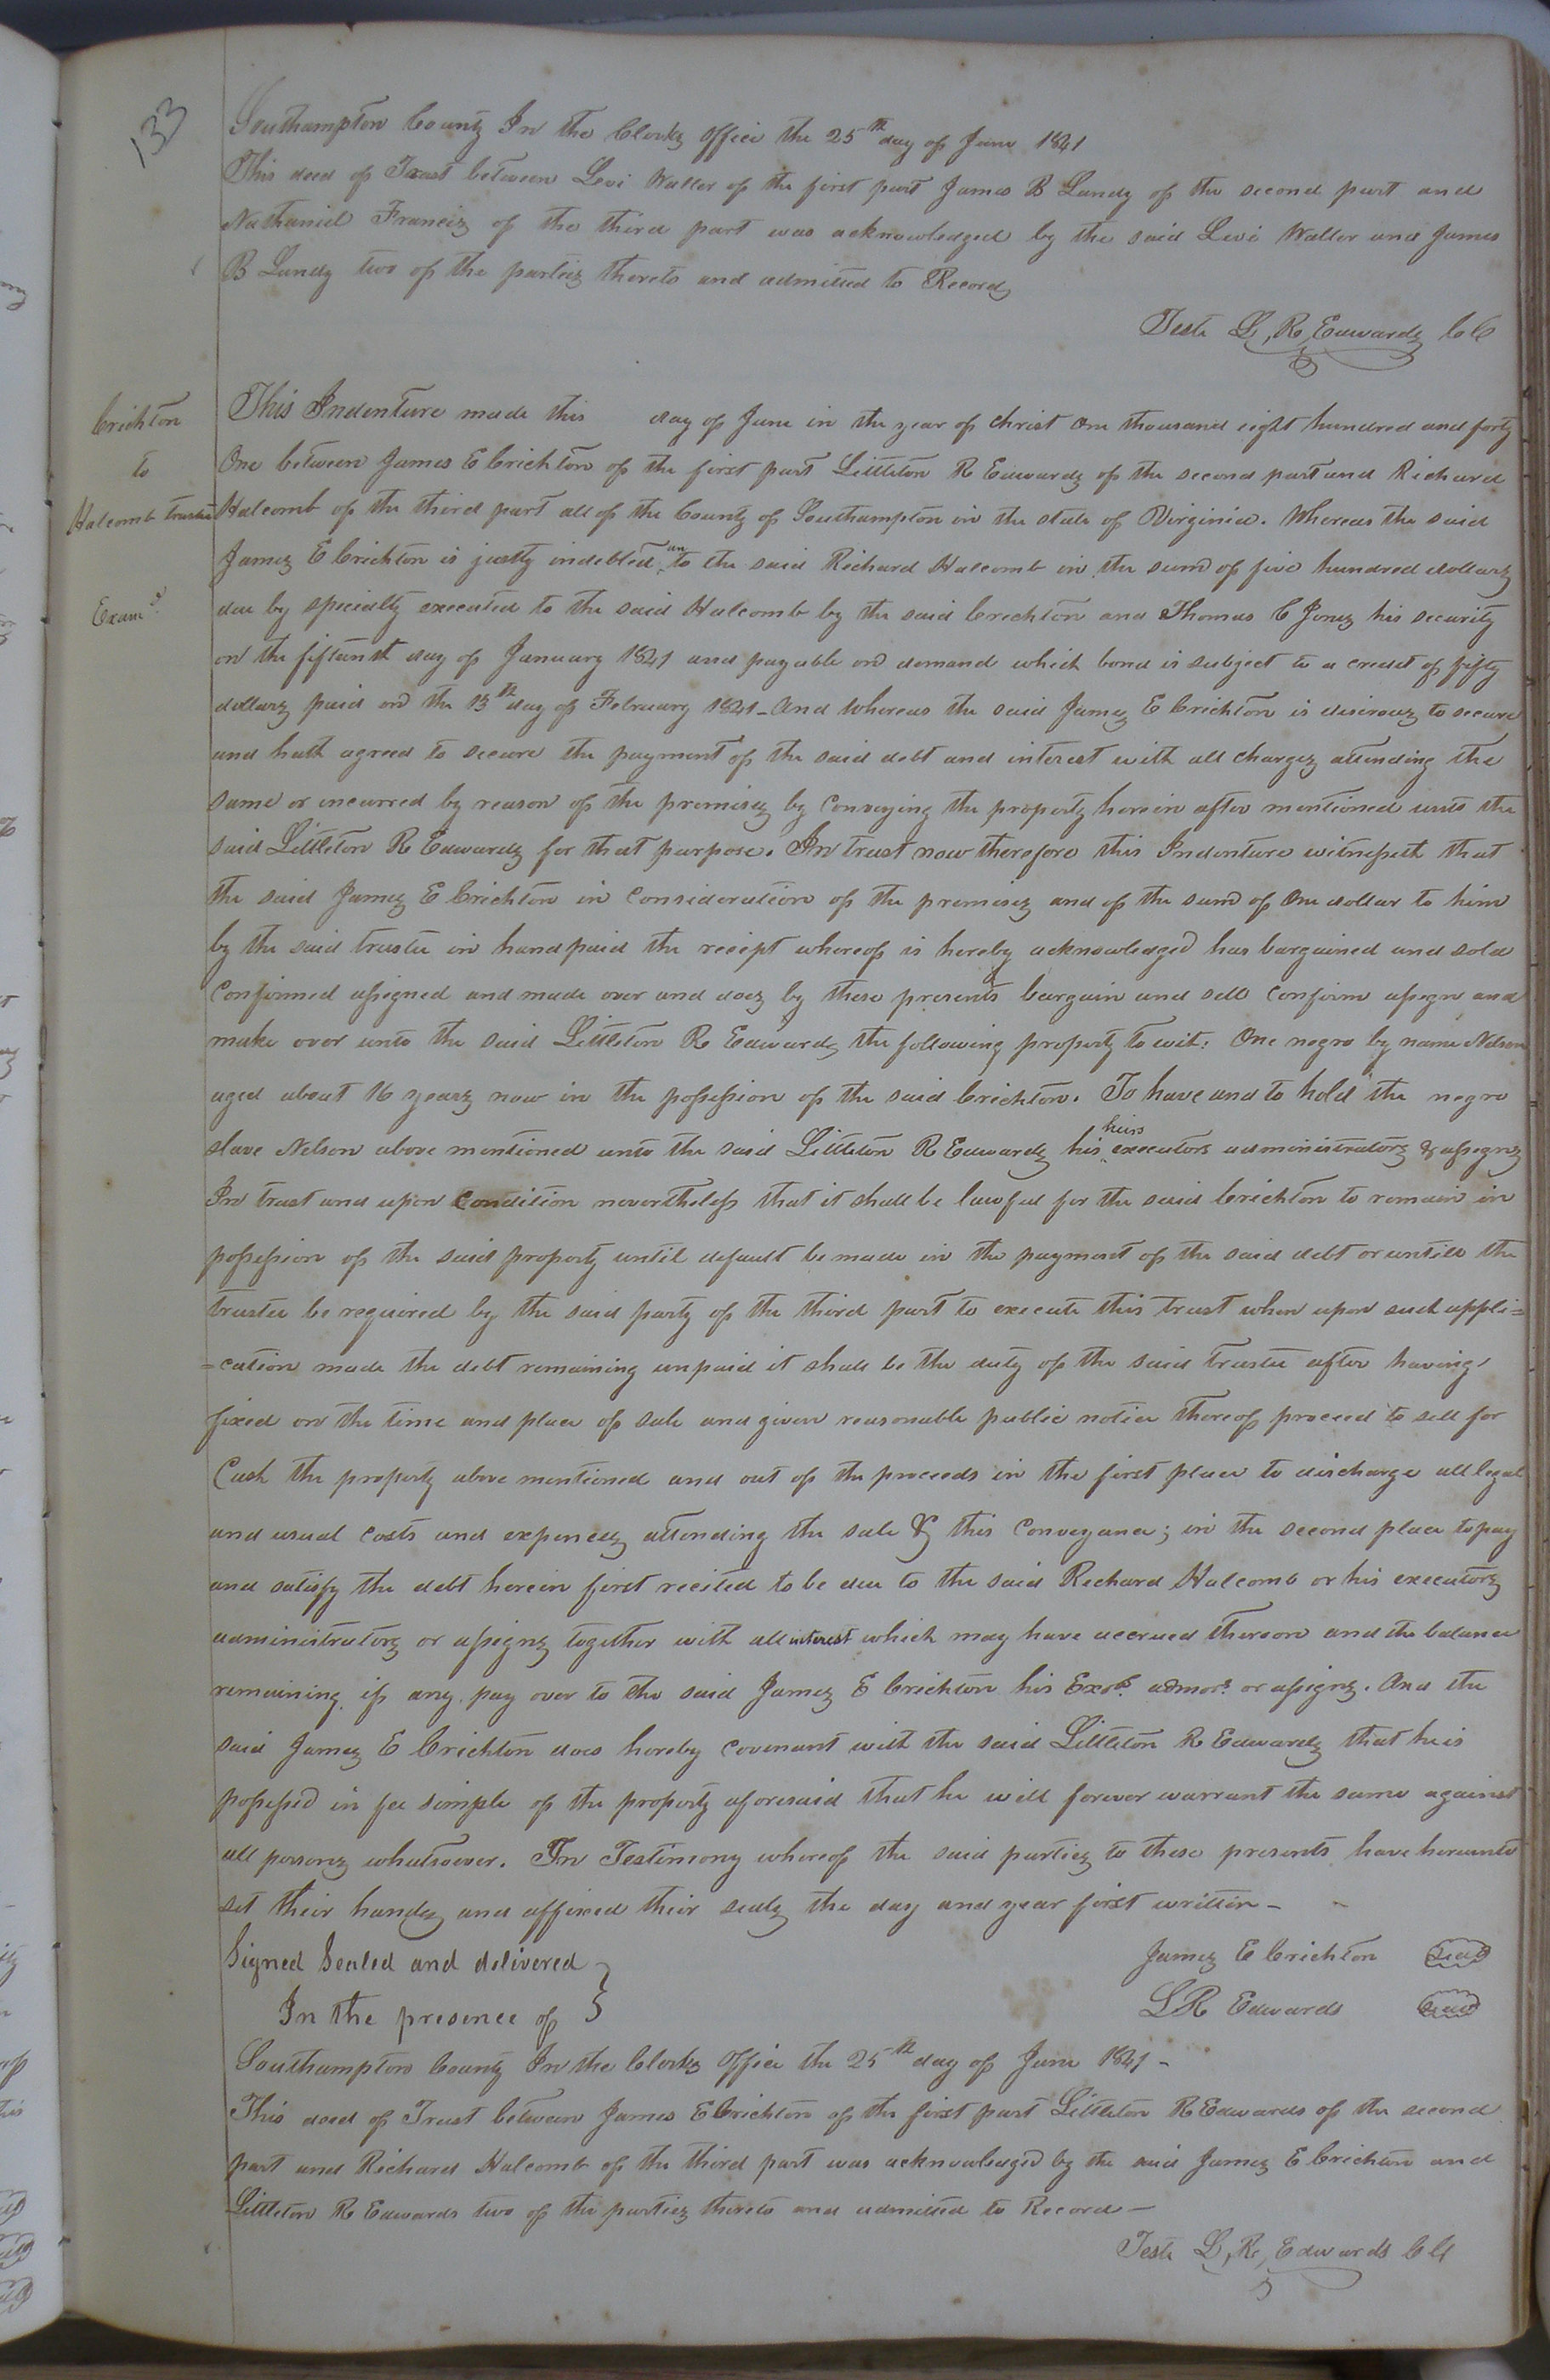 133
Southampton County In the Clerks Office the 25th day of June 1841
This deed of Trust between Levi Waller of the first part James B Lundy of the second part and
Nathaniel Francis of the third part was acknowledged by the said Levi Waller and James
B Lundy two of the parties thereto and admitted to Record
Teste L, R, Edwards CC
Crichton
to
Halcomb trustee
Examd.
This Indenture made this day of June in the year of christ One thousand eight hundred and forty
One between James E Crichton of the first part Littleton R Edwards of the second part and Richard
Halcomb of the third part all of the County of Southampton in the state of Virginia. Whereas the said
James E Crichton is justly indebted an to the said Richard Halcomb in the sum of five hundred dollars
due by specialty executed to the said Halcomb by the said Crichton and Thomas C Jones his security
on the fifteenst day of January 1841 and payable on demand which bond is subject to a credit of fifty
dollars paid on the 13th day of February 1841 - And Whereas the said James E Crichton is disirous to secure
and hath agreed to secure the payment of the said debt and interest with all charges attending the
same or incurred by reason of the premises by Conveying the property herein after mentioned unto the
said Littleton R Edwards for that purpose. In trust now therefore this Indenture witnesseth that
the said James E Crichton in Consideration of the premises and of the sum of One dollar to him
by the said trustee in hand paid the reciept whereof is hereby acknowledged has bargained and sold
Confirmed assigned and made over and does by these presents bargain and sell Confirm assign and
make over unto the said Littleton R Edwards the following property to wit: One negro by name Nelson
aged about 16 years now in the possession of the said Crichton. To have and to hold the negro
slave Nelson above mentioned unto the said Littleton R Edwards his heirs executors administrators & assigns
In trust and upon Condition nevertheless that it shall be lawful for the said Crichton to remain in
possession of the said property until default be made in the payment of the said debt or untill the
trustee be required by the said party of the third part to execute this trust when upon such appli=
=cation made the debt remaining unpaid it shall be the duty of the said trustee after having
fixed on the time and place of sale and given reasonable public notice thereof proceed to sell for
Cash the property above mentioned and out of the proceeds in the first place to discharge all legal
and usual costs and expences attending the sale & this Conveyance; in the second place to pay
and satisfy the debt herein first recited to be due to the said Richard Halcomb or his executors
administrators or assigns together with all interest which may have accrued thereon and the balance
remaining if any pay over to the said James E Crichton his Exors. admors. or assigns. And the
said James E Crichton does hereby Covenant with the said Littleton R Edwards that he is
possessed in fee simple of the property aforesaid that he will forever warrant the same against
all persons whatsoever. In Testimony whereof the said parties to these presents have hereunto
set their hands and affixed their seals the day and year first written -
Signed Sealed and delivered }
In the presence of }
James E Crichton seal
L R Edwards seal
Southampton County In the Clerks Office the 25th day of June 1841 -
This deed of Trust between James E Crichton of the first part Littleton R Edwards of the second
part and Richard Halcomb of the third part was acknowledged by the said James E Crichton and
Littleton R Edwards two of the parties thereto and admitted to Record -
Teste L, R, Edwards CC